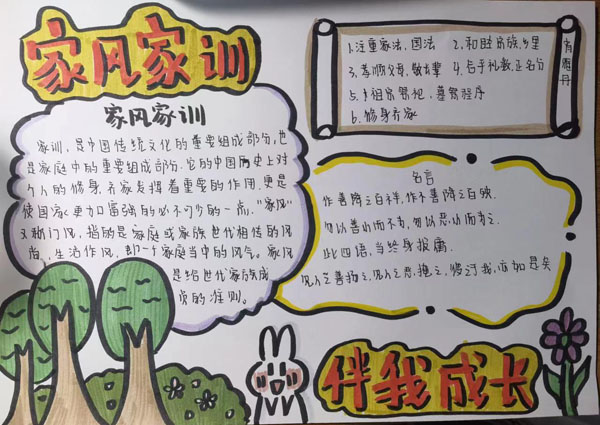 家风家训
家风家训
家训，是中国传统文化的重要组成部分，也
是家庭中的重要组成部分，它的中国历史上对
个人的修身、齐家发挥着重要的作用，更是
使国家更加富强的必不可少的一点，"家风"
又称门风，指的是家庭或家族世代相传的风
尚，生活作风，即一个家庭当中的风气。家风
是给世代家族成
员的准则。
1.注重家法、国法
2.和睦宗族、乡里
3.孝顺父母、敬长辈
4.合乎礼教、正名分
5.祖宗祭祀，墓祭程序
6.修身齐家
肖雨丹
名言
作善降之百祥，作不善降之百殃。
勿以善小而不为，勿以恶小而为之。
此四语，当终身服膺。
见人之善扬之，见人之恶掩之，
伴我成长